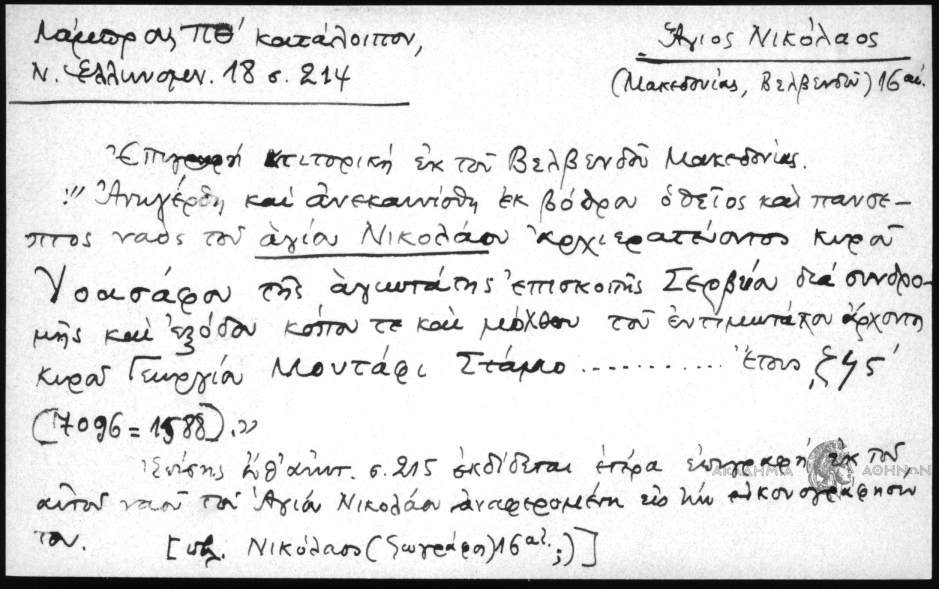 Λάμπρου ΠΘ´ κατάλοιπον,
Ν. Ἑλληνομν. 18 σ. 214
Ἅγιος Νικόλαος
(Μακεδονίας, Βελβενδοῦ) 16 αἰ.
Ἐπιγραφή κτιτορική ἐκ τοῦ Βελβενδοῦ Μακεδονίας.
"Ἀνηγέρθη καί ἀνεκαινίσθη ἐκ βάθρου ὁ θεῖος καί πάνσε-
πτος ναός τοῦ ἁγίου Νικολάου ἀρχιερατεύοντος κυροῦ
Ἰοασάφου τῆς ἁγιωτάτης ἐπισκοπῆς Σερβίων διά συνδρο-
μῆς καί ἐξόδου κόπου τε καί μόχθου τοῦ ἐντιμωτάτου ἄρχοντος
κυροῦ Γεωργίου Μουτάφι Στάμκο ............ Ἔτους ζϟϛ´
(7096 = 1588).»
Ἐπίσης ἔνθ' ἀνωτ. σ. 215 ἐκδίδεται ἑτέρα ἐπιγραφή ἐκ τοῦ
αὐτοῦ ναοῦ τοῦ Ἁγίου Νικολάου ἀναφερομένη εἰς τήν εἰκονογράφησίν
του. [πβ. Νικόλαος (ζωγράφος) 16 αἰ. ;)]
ΑΚΑΔΗΜΙΑ ΑΘΗΝΩΝ